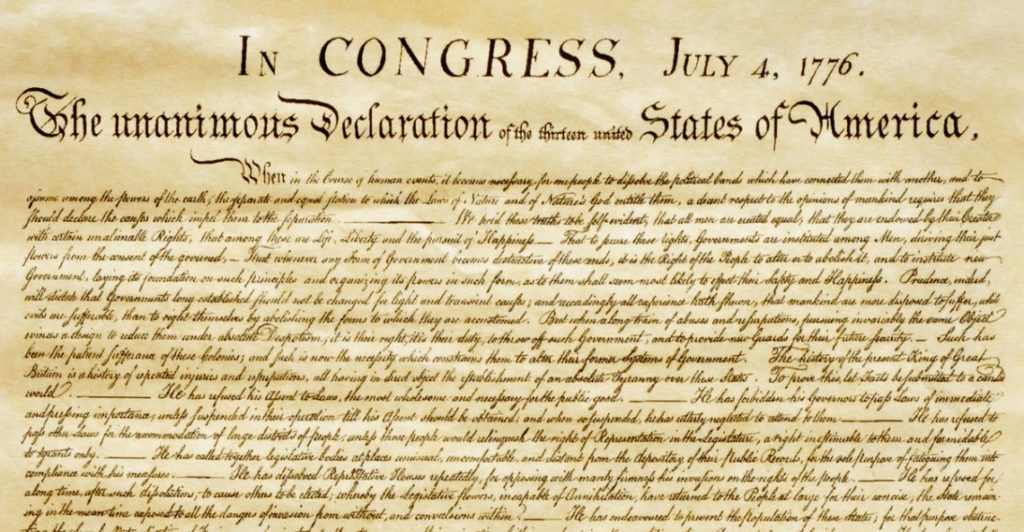 In CONGRESS, July 4, 1776.
The unanimous Declaration of the thirteen united States of America,
When in the Course of human events, it becomes necessary for one people to dissolve the political bands which have connected them with another, and to
assume among the powers of the earth, the separate and equal station to which the Laws of Nature and of Nature's God entitle them, a decent respect to the opinions of mankind requires that they
should declare the causes which impel them to the separation. We hold these truths to be self-evident, that all men are created equal, that they are endowed by their Creator
with certain unalienable Rights, that among these are Life, Liberty and the pursuit of Happiness.— That to secure these rights, Governments are instituted among Men, deriving their just
powers from the consent of the governed,— That whenever any Form of Government becomes destructive of these ends, it is the Right of the People to alter or to abolish it, and to institute new
Government, laying its foundation on such principles and organizing its powers in such form, as to them shall seem most likely to effect their Safety and Happiness. Prudence, indeed,
will dictate that Governments long established should not be changed for light and transient causes; and accordingly all experience hath shewn, that mankind are more disposed to suffer, while
evils are sufferable, than to right themselves by abolishing the forms to which they are accustomed. But when a long train of abuses and usurpations, pursuing invariably the same Object
evinces a design to reduce them under absolute Despotism, it is their right, it is their duty, to throw off such Government, and to provide new Guards for their future security.— Such has
been the patient sufferance of these Colonies; and such is now the necessity which constrains them to alter their former Systems of Government. The history of the present King of Great
Britain is a history of repeated injuries and usurpations, all having in direct object the establishment of an absolute Tyranny over these States. To prove this, let Facts be submitted to a candid
world. He has refused his Assent to Laws, the most wholesome and necessary for the public good. He has forbidden his Governors to pass Laws of immediate
and pressing importance, unless suspended in their operation till his Assent should be obtained; and when so suspended, he has utterly neglected to attend to them. He has refused to
pass other Laws for the accommodation of large districts of people, unless those people would relinquish the right of Representation in the Legislature, a right inestimable to them and formidable
to tyrants only. He has called together legislative bodies at places unusual, uncomfortable, and distant from the depository of their public Records, for the sole purpose of fatiguing them into
compliance with his measures. He has dissolved Representative Houses repeatedly, for opposing with manly firmness his invasions on the rights of the people. He has refused for a
long time, after such dissolutions, to cause others to be elected; whereby the Legislative powers, incapable of Annihilation, have returned to the People at large for their exercise; the State remain-
ing in the mean time exposed to all the dangers of invasion from without, and convulsions within. He has endeavoured to prevent the population of these States; for that purpose obstruc-